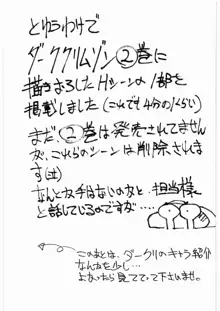 とゆうわけで
ダーククリムゾン②巻に
描きおろしたHシーンの1部を
掲載しました(これで4分の1くらい)
まだ②巻は発売されてません
が、これらのシーンは削除されま
す(泣)
なんとか手はないのかと、担当様
と話しているのですが……
このあとは、ダークリのキャラ紹介
なんかを少し…
よかったら見てって下さいませ。